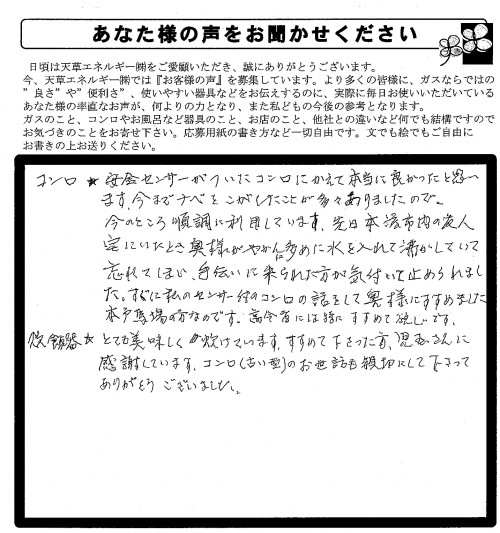 あなた様の声をお聞かせください
日頃は天草エネルギー㈱をご愛顧いただき、誠にありがとうございます。
今、天草エネルギー㈱では『お客様の声』を募集しています。より多くの皆様に、ガスならではの
”良さ”や”便利さ”、使いやすい器具などをお伝えするのに、実際に毎日お使いいただいている
あなた様の率直なお声が、何よりの力となり、また私どもの今後の参考となります。
ガスのこと、コンロやお風呂など器具のこと、お店のこと、他社との違いなど何でも結構ですので
お気づきのことをお寄せ下さい。応募用紙の書き方など一切自由です。文でも絵でもご自由に
お書きの上お送りください。
コンロ ★ 安全センサーがついたコンロにかえて本当に良かったと思い
ます、今までナベをこがしたことが多々ありましたので。
今のところ順調に利用しています、先日本渡市内の友人
宅にいたとき奥様がやかんに多めに水を入れて沸かしていて
忘れてしまい、手伝いに来られた方が気付いて止められまし
た。すぐに私のセンサー付のコンロの話をして奥様にすすめました
本戸馬場の方なのです。高令者には特にすすめて欲しいです。
炊飯器 ★ とても美味しく炊けています、すすめて下さった方、児玉さんに
感謝しています、コンロ(古い型)のお世話も親切にして下さって
ありがとうございました。